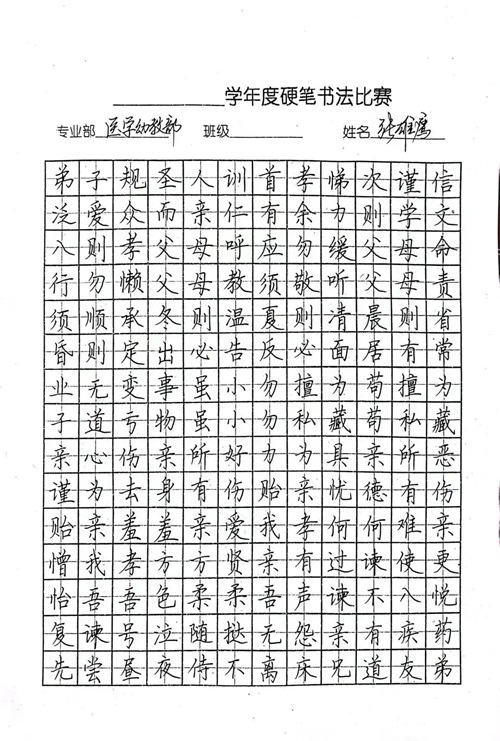 学年度硬笔书法比赛
专业部 医学幼教部 班级 姓名 张雄鹰
弟子规圣人训首孝悌次谨信
泛爱众而亲仁有余力则学文
入则孝父母呼应勿缓父母命
行勿懒父母教须敬听父母责
须顺承冬则温夏则清晨则省
昏则定出必告反必面居有常
业无变事虽小勿擅为苟擅为
子道亏物虽小勿私藏苟私藏
亲心伤亲所好力为具亲所恶
谨为去身有伤贻亲忧德有伤
贻亲羞羞亲爱我孝何何难亲
憎我孝方方贤亲有过谏使更
怡吾吾色柔柔吾声谏不入悦
复谏号泣随挞无怨亲有疾药
先尝昼夜侍不离床兄道友弟